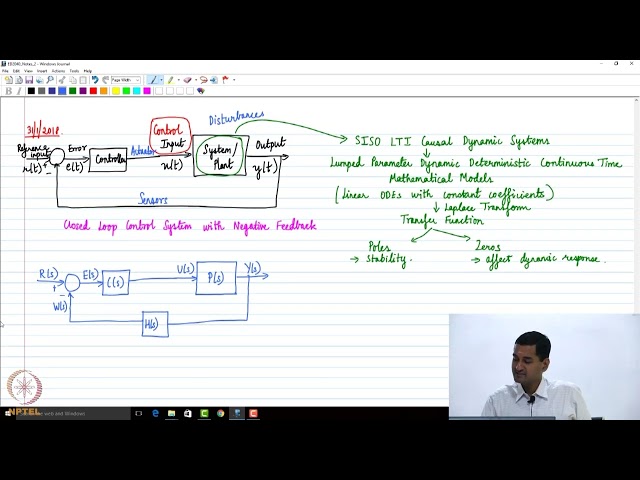 ED2040_Notes_2 - Windows Journal
File Edit View Insert Actions Tools Help
Page Width
31/1/2018.
Disturbances
Reference input r(t) + - Error e(t) Controller Actuator Control Input u(t) System/Plant Output y(t)
Sensors
Closed Loop Control System with Negative Feedback
R(s) + - E(s) C(s) U(s) P(s) Y(s)
W(s) H(s)
→ SISO LTI Causal Dynamic Systems
↓
Lumped Parameter Dynamic Deterministic Continuous Time
Mathematical Models
(Linear ODEs with constant coefficients)
↓ Laplace Transform
Transfer Function
Poles Zeros
→ Stability. → affect dynamic response.
NPTEL
web and Windows